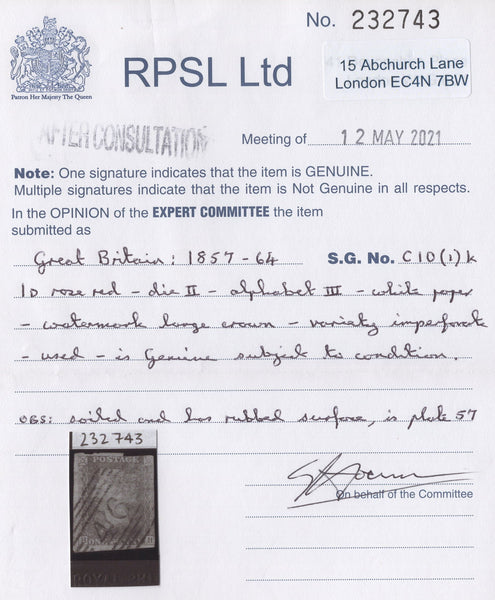 No. 232743
RPSL Ltd
15 Abchurch Lane
London EC4N 7BW
Patron Her Majesty The Queen
AFTER CONSULTATION
Meeting of 12 MAY 2021
Note: One signature indicates that the item is GENUINE.
Multiple signatures indicate that the item is Not Genuine in all respects.
In the OPINION of the EXPERT COMMITTEE the item
submitted as
Great Britain: 1857-64 S.G. No. C10(1)k
1D rose red - die II - alphabet III - white paper
- watermark large crown - variety imperforate
- used - is Genuine subject to condition.
OBS: soiled and has rubbed surface, is plate 57
232 743
POSTAGE
On behalf of the Committee